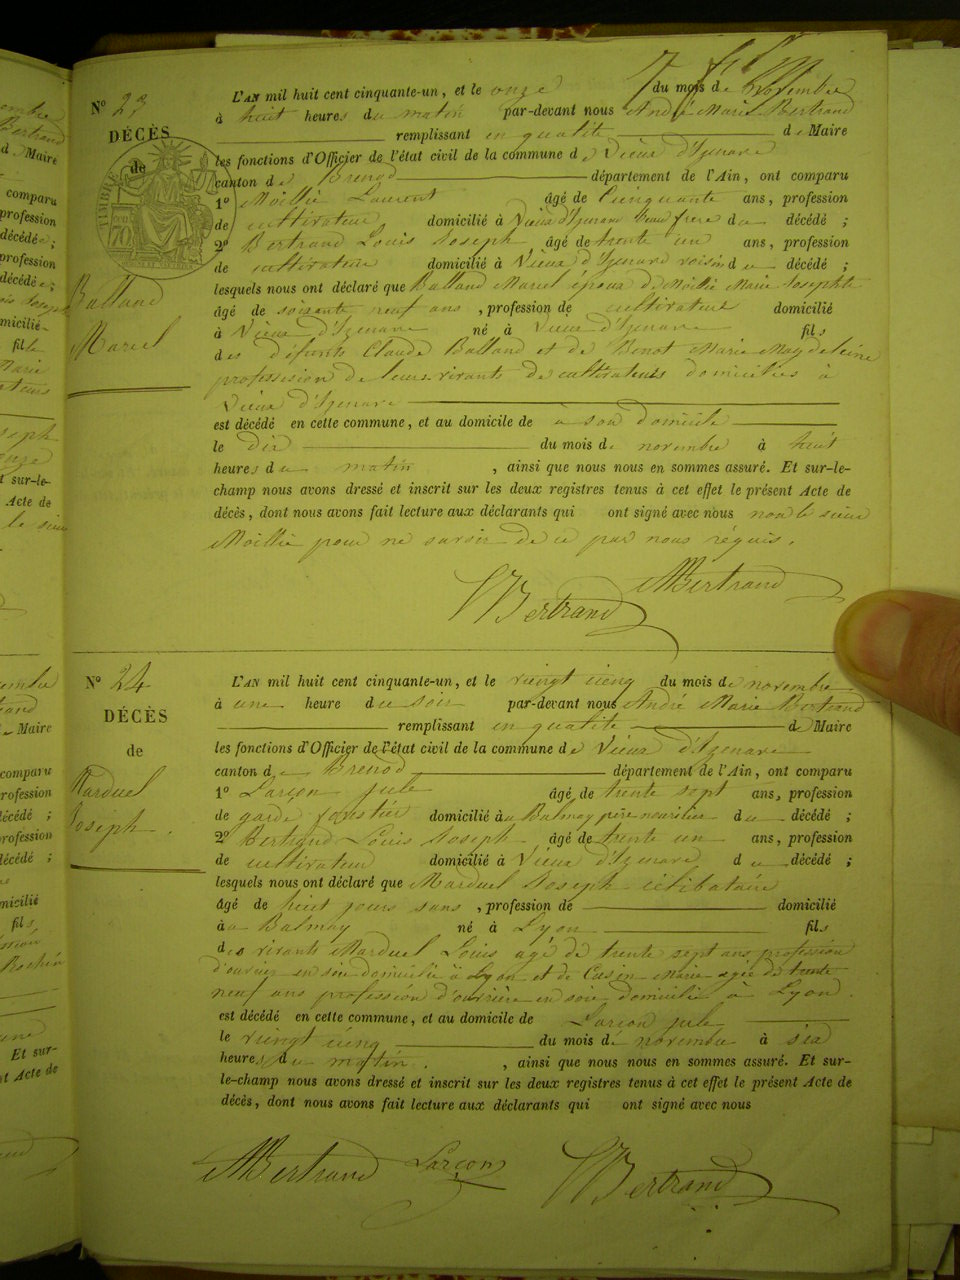 N° 23
DÉCÈS
de
Balland
Marcel
L'AN mil huit cent cinquante-un, et le onze du mois de Novembre
à huit heures du matin par-devant nous André Marie Bertrand
remplissant en qualité de Maire
les fonctions d'Officier de l'état civil de la commune de Vieux d'Izenave
canton de Brenod département de l'Ain, ont comparu
1° Moillie Laurent âgé de cinquante ans, profession
de cultivateur domicilié à Vieux d'Izenave beau frere du décédé ;
2° Bertrand Louis Joseph âgé de trente un ans, profession
de cultivateur domicilié à Vieux d'Izenave voisin du décédé ;
lesquels nous ont déclaré que Balland Marcel époux de Moillie Marie Josephte
âgé de soixante neuf ans , profession de cultivateur domicilié
à Vieux d'Izenave né à Vieux d'Izenave fils
des défunts Claude Balland et de Benot Marie Magdeleine
profession de leurs vivants de cultivateurs domiciliés à
Vieux d'Izenave
est décédé en cette commune, et au domicile de à son domicile
le dix du mois de novembre à huit
heures du matin , ainsi que nous nous en sommes assuré. Et sur-le-
champ nous avons dressé et inscrit sur les deux registres tenus à cet effet le présent Acte de
décès, dont nous avons fait lecture aux déclarants qui ont signé avec nous non le sieur
Moillie pour ne savoir de ce par nous réquis.
Bertrand AMBertrand
N° 24
DÉCÈS
de
Marduel
Joseph
L'AN mil huit cent cinquante-un, et le vingt cinq du mois de novembre
à une heure du soir par-devant nous André Marie Bertrand
remplissant en qualité de Maire
les fonctions d'Officier de l'état civil de la commune de Vieux d'Izenave
canton de Brenod département de l'Ain, ont comparu
1° Larçon jule âgé de trente sept ans, profession
de garde forestier domicilié à Balmay père nouricier du décédé ;
2° Bertrand Louis Joseph âgé de trente un ans, profession
de cultivateur domicilié à Vieux d'Izenave du décédé ;
lesquels nous ont déclaré que Marduel Joseph célibataire
âgé de huit jours sans , profession de domicilié
à Balmay né à Lyon fils
des vivants Marduel Louis agé de trente sept ans profession
d'ouvrier en soie domicilié à Lyon et de Cusin Marie agée de trente
neuf ans profession d'ouvrière en soie domicilié à Lyon
est décédé en cette commune, et au domicile de Larçon jule
le vingt cinq du mois de novembre à six
heures du matin. , ainsi que nous nous en sommes assuré. Et sur-
le-champ nous avons dressé et inscrit sur les deux registres tenus à cet effet le présent Acte de
décès, dont nous avons fait lecture aux déclarants qui ont signé avec nous
AMBertrand Larçon Bertrand